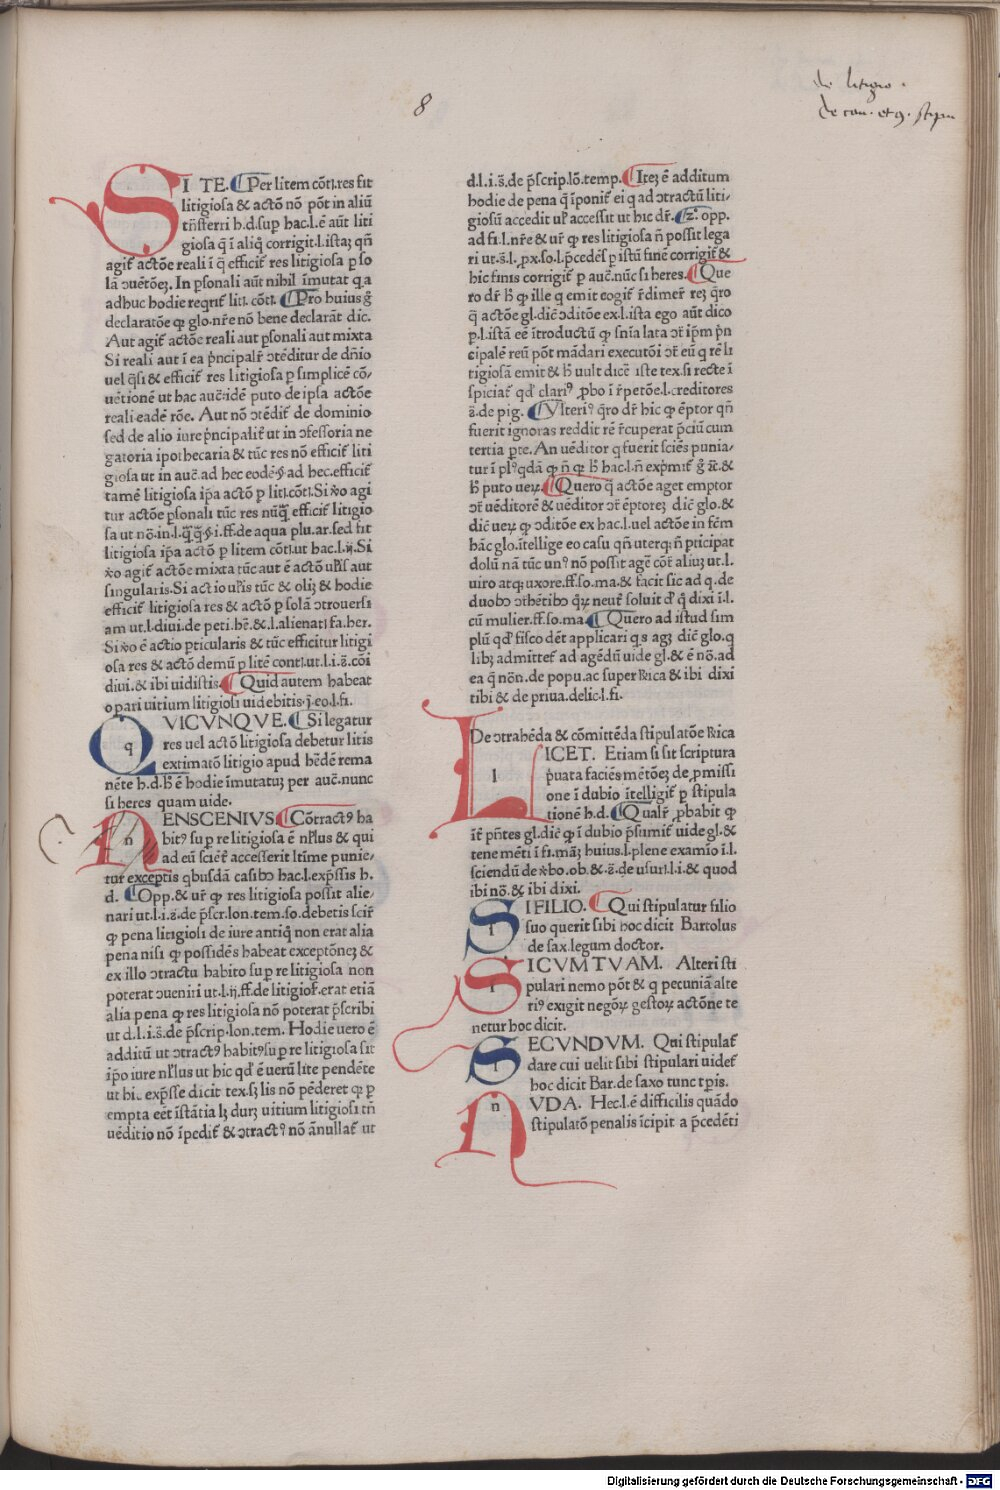 8
de litigio.
SI TE. Per litem cōtꝭ.res fit
litigiosa & actō nō pōt in aliū
trāsferri h.d.sup hac.l.ē aūt liti
giosa q̄ ī aliq̄ corrigit.l.istaꝫ qn̄
agit̄ actōe reali ī q̄ efficit̄ res litigiosa p so
lā ↄuētōeꝫ. In p̱sonali aūt nihil īmutat q.a
adhuc hodie reqrit̄ liti.cōtꝭ. Pro huius g̊
declaratōe ꝙ glo.nr̄e nō bene declarāt dic.
Aut agit̄ actōe reali aut p̱sonali aut mixta
Si reali aut ī ea p̄ncipalr̄ ↄtēditur de dn̄io
uel q̄si & efficit̄ res litigiosa p simplicē cō/
uētionē ut hac auc̄.idē puto de ipsa actōe
reali eadē rōe. Aut nō ↄtēdit̄ de dominio
sed de alio iure p̄ncipalit̄ ut in ↄfessoria ne
gatoria ipothecaria & tūc res nō efficit̄ liti
giosa ut in auc̄.ad hec eodē.§ ad hec.efficit̄
tamē litigiosa ip̄a actō p liti.cōtꝭ.Si ꝟo agi
tur actōe p̱sonali tūc res nūq̄ efficit̄ litigio
sa ut nō.in.l.q̄q̄.§.i.ff.de aqua plu.ar.sed fit
litigiosa ip̄a actō p litem cōtꝭ.ut hac.l.ij.Si
ꝟo agit̄ actōe mixta tūc aut ē actō ul̄is aut
singularis.Si actio ul̄is tūc & olī & hodie
efficit̄ litigiosa res & actō p solā ↄtrouersi
am ut.l.diui.de peti.hē.&.l.alienatꝭ fa.her.
Si ꝟo ē actio pticularis & tūc efficitur litigi
osa res & actō demū p litē contꝭ.ut.l.i.s̄.cōi
diui.& ibi uidistis. Quid autem habeat
operari uitium litigiosi uidebitis.j.eo.l.fi.
QVICVNQVE. Si legatur
res uel actō litigiosa debetur litis
extimatō litigio apud hēdē rema
nēte h.d.hꝰ ē hodie īmutatuꝫ per auc̄.nunc
si heres quam uide.
NENSCENIVS. Cōtractꝰ ha
bitꝰ sup re litigiosa ē nꝉlus & qui
ad eū sciēt̄ accesserit ltīme punie/
tur exceptis qbusdā casibꝫ hac.l.exp̄ssis h.
d. Opp.& ur̄ ꝙ res litigiosa possit alie/
nari ut.l.i.s̄.de p̄scr.lon.tem.so.debetis scir̄
ꝙ pena litigiosi de iure antiq̄ non erat alia
pena nisi ꝙ possidēs habeat exceptōneꝫ &
ex illo ↄtractu habito sup re litigiosa non
poterat ↄueniri ut.l.ij.ff.de litigios̄.erat etiā
alia pena ꝙ res litigiosa nō poterat p̄scribi
ut d.l.i.s̄.de p̄scrip.lon.tem. Hodie uero ē
additū ut ↄtractꝰ habitꝰ sup re litigiosa sit
ip̄o iure nꝉlus ut hic qd̄ ē uerū lite pendēte
ut hic exp̄sse dicit tex.sꝫ lis nō pēderet ꝙ p
empta eēt īstātia lꝫ durꝫ uitium litigiosi tn̄
uēditio nō īpedit̄ & ↄtractꝰ nō ānullat̄ ut
d.l.i.s̄.de p̄scrip.lō.temp. Iteꝫ ē additum
hodie de pena q̄ īponit̄ ei q ad ↄtractū liti/
giosū accedit ul̄ accessit ut hic dr̄. 2°. opp.
ad fi.l.nr̄e & ur̄ ꝙ res litigiosa n̄ possit lega
ri ut.s̄.l.px.so.l.p̄cedēs p istū finē corrigit̄ &
hic finis corrigit̄ p auc̄.nūc si heres. Que
ro dr̄ hꝰ ꝙ ille q emit cogit̄ r̄dimer̄ reꝫ q̄ro
q̄ actōe gl.diē ↄditōe ex.l.ista ego aūt dico
p.l.istā eē ītroductū ꝙ sn̄ia lata ↄt̄ ip̄m p̄n
cipalē reū pōt mādari executōi ↄt̄ eū q rē li
tigiosā emit & hꝰ uult dicē iste tex.si recte ī
spiciat̄ qd̄ clariꝰ pbo ī r̄petōe.l.creditores
s̄.de pig. Vlteriꝰ q̄ro dr̄ hic ꝙ ēptor qn̄
fuerit ignoras reddit rē r̄cuperat p̄ciū cum
tertia p̱te. An uēditor q fuerit sciēs punia/
tur ī plꝰ qdā ꝙ n̄ ꝙ hꝰ hac.l.n̄ exp̄mit̄ g̊ īt̄.&
hꝰ puto ueꝝ. Quero q̄ actōe aget emptor
ↄt̄ uēditorē & uēditor ↄt̄ ēptoreꝫ diē glo.&
diē ueꝝ ꝙ ↄditōe ex hac.l.uel actōe in fc̄m
hāc glo.ītellige eo casu qn̄ uterqꝫ n̄ pticipat
dolū nā tūc unꝰ nō possit agē cōt̄ aliuꝫ ut.l.
uiro atqꝫ uxore.ff.so.ma.& facit sic ad q.de
duobꝫ ↄthētibꝫ q̄ꝝ neut̄ soluit d̄ q̄ dixi ī.l.
cū mulier.ff.so.ma. Quero ad istud sim
plū qd̄ fisco dēt applicari q̄s agꝫ diē glo.q
libꝫ admittet̄ ad agēdū uide gl.& ē nō.ad
ea q̄ nōn.de popu.ac super Rica & ibi dixi
tibi & de priua.delic.l.fi.
De ↄtrahēda & cōmittēda stipulatōe Rica
LICET. Etiam si sit scriptura
p̄uata faciēs mētōeꝫ de pmissi
one ī dubio ītelligit̄ p stipula
tionē h.d. Qualr̄ pbabit ꝙ
īt̄ pn̄tes gl.diē ꝙ ī dubio p̄sumit̄ uide gl.&
tene mēti ī fi.māꝫ huius.l.plene examīo ī.l.
sciendū de ꝟbo.ob.&.s̄.de usurꝭ.l.i.& quod
ibi nō.& ibi dixi.
SI FILIO. Qui stipulatur filio
suo querit sibi hoc dicit Bartolus
de sax.legum doctor.
SICVM TVAM. Alteri sti
pulari nemo pōt & q pecuniā alte
riꝰ exigit negōꝝ gestoꝝ actōne te
netur hoc dicit.
SECVNDVM. Qui stipulat̄
dare cui uelit sibi stipulari uidet̄
hoc dicit Bar.de saxo tunc tp̱is.
NVDA. Hec.l.ē difficilis quādo
stipulatō penalis īcipit a p̄cedēti
Digitalisierung gefördert durch die Deutsche Forschungsgemeinschaft - DFG